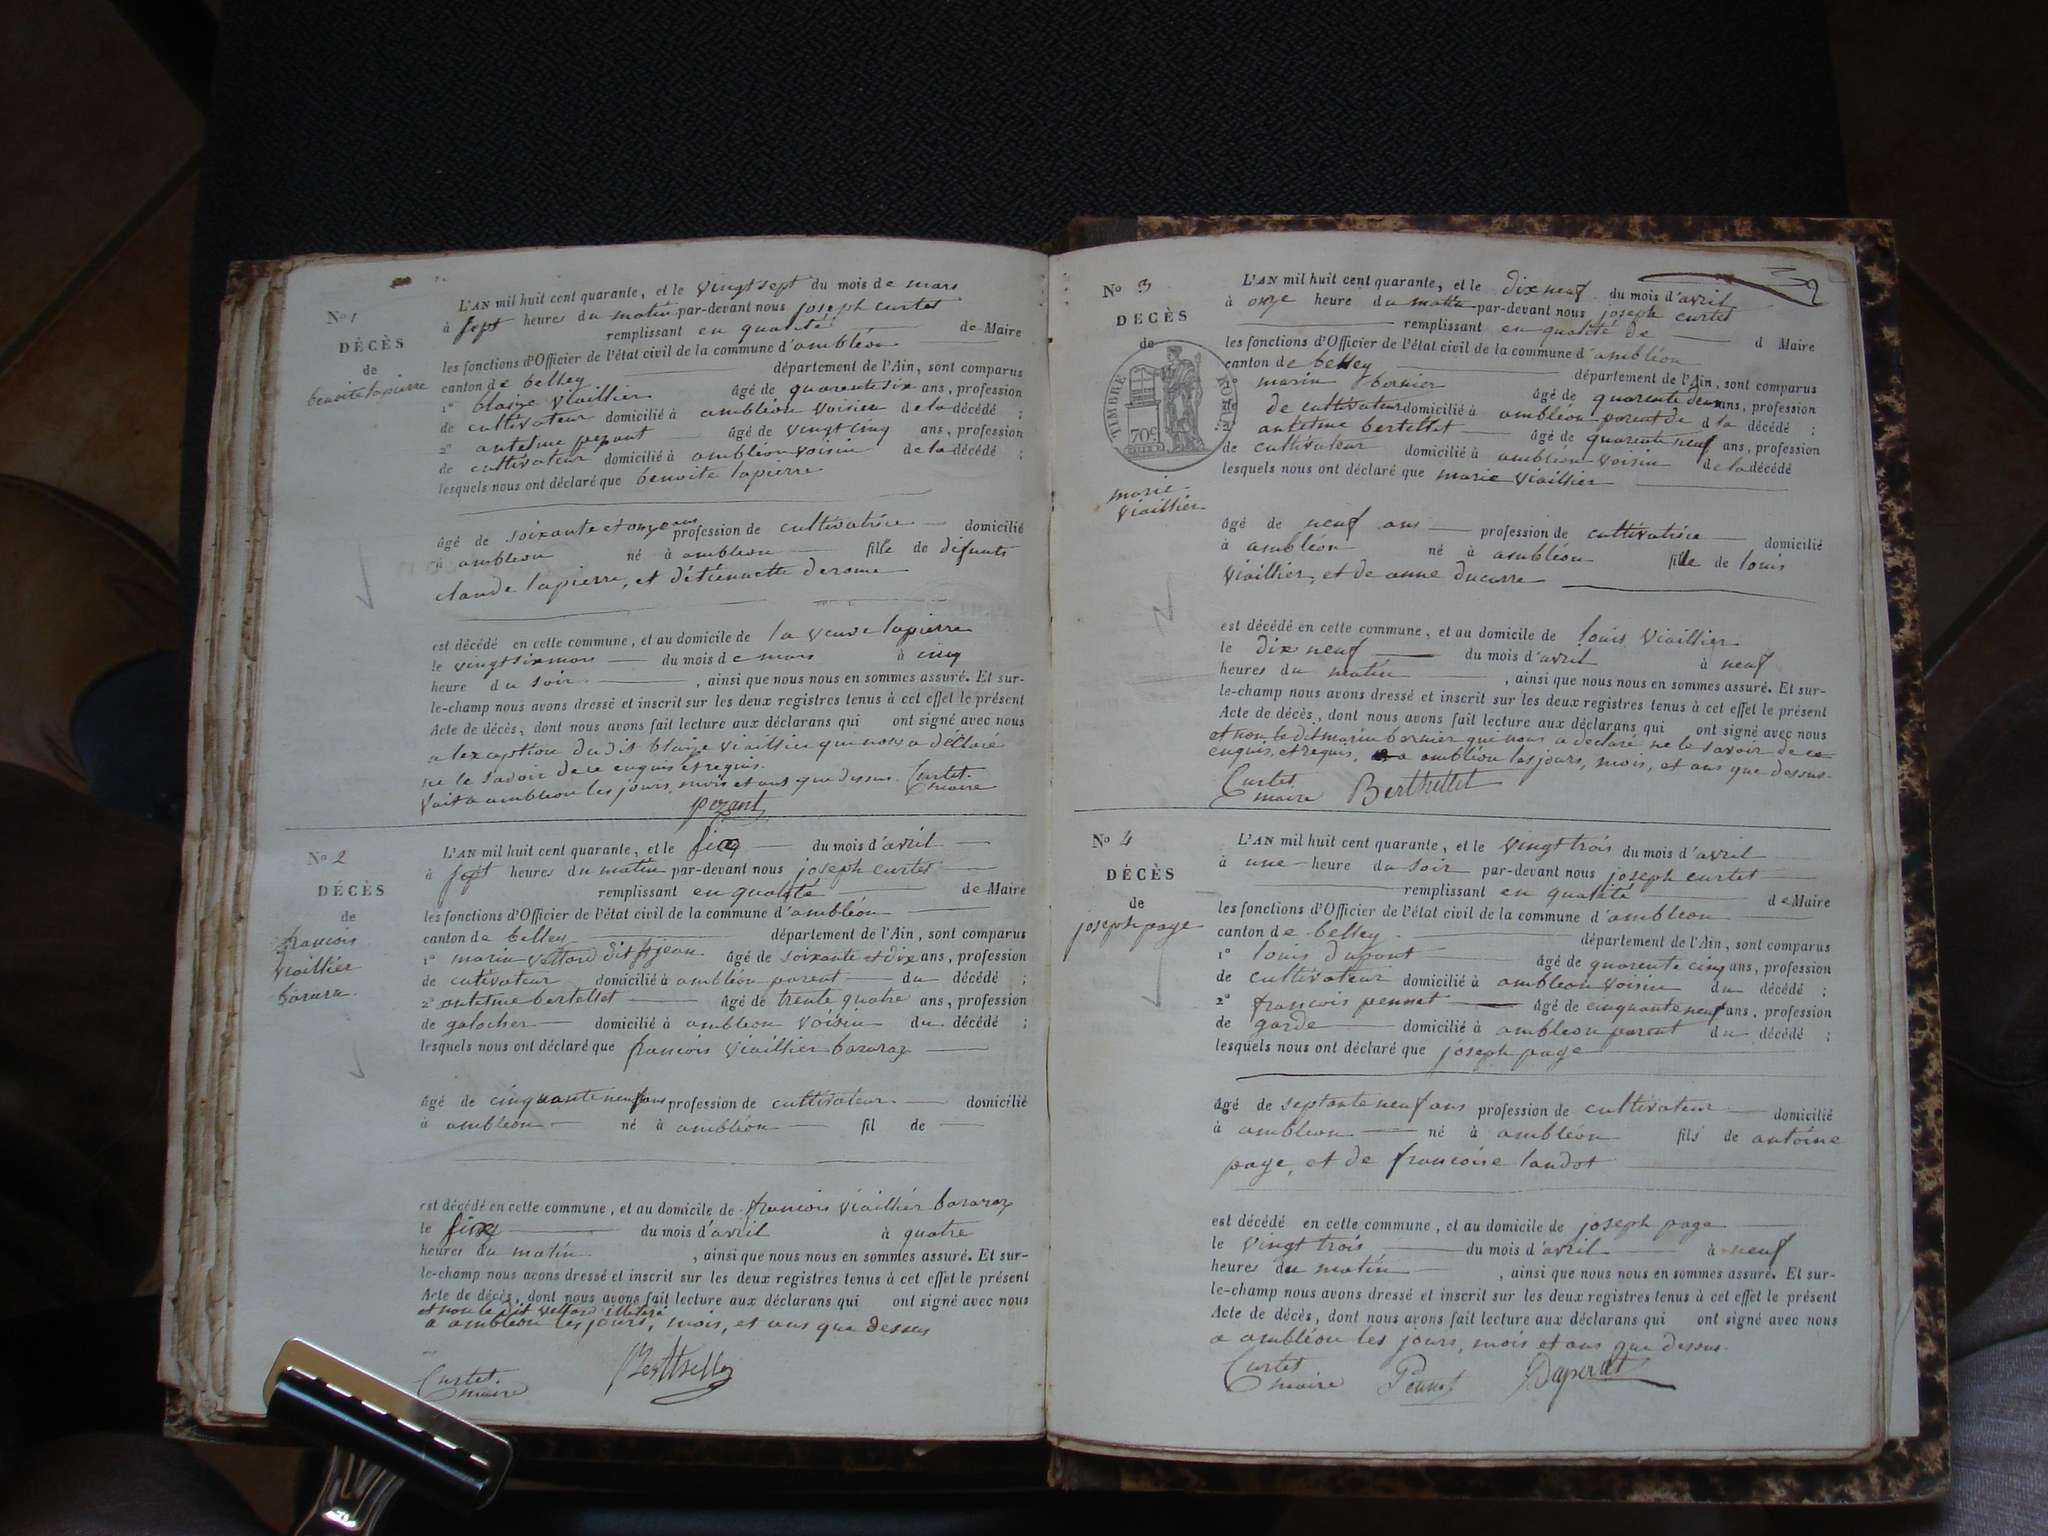 N° 1
DÉCÈS
de
benoite lapierre
L'AN mil huit cent quarante, et le vingt sept du mois de mars
à sept heures du matin par-devant nous joseph curtet
remplissant en qualité de Maire
les fonctions d'Officier de l'état civil de la commune d'ambléon
canton de belley département de l'Ain, sont comparus
1° blaize viaillier âgé de quarente six ans, profession
de cultivateur domicilié à ambléon voisin de la décédé ;
2° antelme pezant âgé de vingt cinq ans, profession
de cultivateur domicilié à ambléon voisin de la décédé ;
lesquels nous ont déclaré que benoite lapierre
âgé de soixante et onze ans profession de cultivatrice domicilié
à ambleon né à ambleon fille de difunts
claude lapierre, et d'étiennette derome
est décédé en cette commune, et au domicile de la veuve lapierre
le vingt six mars du mois de mars à cinq
heure du soir , ainsi que nous nous en sommes assuré. Et sur-
le-champ nous avons dressé et inscrit sur les deux registres tenus à cet effet le présent
Acte de décès, dont nous avons fait lecture aux déclarans qui ont signé avec nous
a lexception du dit blaize viaillier qui nous a déclaré
ne le savoir de ce enquis et requis.
fait a ambléon les jours, mois et ans que dessus. Curtet
maire
pezant
N° 2
DÉCÈS
de
francois
viaillier
bararu
L'AN mil huit cent quarante, et le six du mois d'avril
à sept heures du matin par-devant nous joseph curtet
remplissant en qualité de Maire
les fonctions d'Officier de l'état civil de la commune d'ambléon
canton de belley département de l'Ain, sont comparus
1° marin vettard dit jean âgé de soixante et dix ans, profession
de cutivateur domicilié à ambléon parent du décédé ;
2° antelme bertellet âgé de trente quatre ans, profession
de galocher domicilié à ambleon voisin du décédé ;
lesquels nous ont déclaré que francois viaillier bararaz
âgé de cinquante neuf ans profession de cultivateur domicilié
à ambleon né à ambléon fil de
est décédé en cette commune, et au domicile de francois viaillier bararaz
le six du mois d'avril à quatre
heures du matin , ainsi que nous nous en sommes assuré. Et sur-
le-champ nous avons dressé et inscrit sur les deux registres tenus à cet effet le présent
Acte de décès, dont nous avons fait lecture aux déclarans qui ont signé avec nous
et non le dit vettard illeteré
a ambleon les jours, mois, et ans que dessus
Curtet
maire
N° 3
DÉCÈS
de
TIMBRE ROYAL
70 c.
marie
viaillier
L'AN mil huit cent quarante, et le dix neuf du mois d'avril
à onze heure du matin par-devant nous joseph curtet
remplissant en qualité de d Maire
les fonctions d'Officier de l'état civil de la commune d'ambléon
canton de belley département de l'Ain, sont comparus
1° marin bornier âgé de quarente deux ans, profession
de cultivateur domicilié à ambléon parent de la décédé ;
2° antelme bertellet âgé de quarente neuf ans, profession
de cultivateur domicilié à ambleon voisin de la décédé
lesquels nous ont déclaré que marie viaillier
âgé de neuf ans profession de cultivatrice domicilié
à ambléon né à ambléon fille de louis
viaillier, et de anne ducarre
est décédé en cette commune, et au domicile de louis viaillier
le dix neuf du mois d'avril à neuf
heures du matin , ainsi que nous nous en sommes assuré. Et sur-
le-champ nous avons dressé et inscrit sur les deux registres tenus à cet effet le présent
Acte de décès, dont nous avons fait lecture aux déclarans qui ont signé avec nous
et non le dit marin bornier qui nous a déclaré ne le savoir de ce
enquis, et requis, a ambléon les jours, mois, et ans que dessus
Curtet
maire Berthellet
N° 4
DÉCÈS
de
joseph page
L'AN mil huit cent quarante, et le vingt trois du mois d'avril
à une heure du soir par-devant nous joseph curtet
remplissant en qualité de Maire
les fonctions d'Officier de l'état civil de la commune d'ambleon
canton de belley département de l'Ain, sont comparus
1° louis dupont âgé de quarente cinq ans, profession
de cultivateur domicilié à ambléon voisin du décédé ;
2° francois pennet âgé de cinquante neuf ans, profession
de garde domicilié à ambleon parent du décédé ;
lesquels nous ont déclaré que joseph page
âgé de septante neuf ans profession de cultivateur domicilié
à ambleon né à ambléon fils de antoine
page, et de francoise landot
est décédé en cette commune, et au domicile de joseph page
le vingt trois du mois d'avril à neuf
heures du matin , ainsi que nous nous en sommes assuré. Et sur-
le-champ nous avons dressé et inscrit sur les deux registres tenus à cet effet le présent
Acte de décès, dont nous avons fait lecture aux déclarans qui ont signé avec nous
a ambléon les jours, mois et ans que dessus.
Curtet
maire Pennet